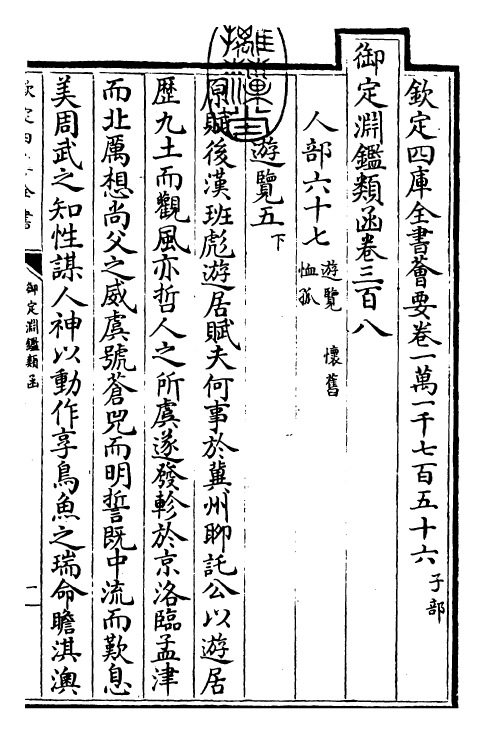 欽定四庫全書薈要卷一萬一千七百五十六 子部
御定淵鑑類函卷三百八
人部六十七 遊覽 懷舊
恤孤
遊覽五下
原賦後漢班彪遊居賦夫何事於冀州聊託公以遊居
歷九土而觀風亦哲人之所虞遂發軫於京洛臨孟津
而北厲想尚父之威虞號蒼兕而明誓既中流而歎息
美周武之知性謀人神以動作享鳥魚之瑞命瞻淇澳
御定淵鑑類函
一